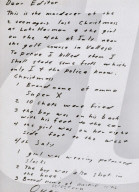 Dear Editor
This is the murderer of the
2 teenagers last Christmass
at Lake Herman & the girl
on the 4th of July near
the golf course in Vallejo
To prove I killed them I
shall state some facts which
only I & the police know.
Christmass
1 Brand name of ammo
Super X
2 10 shots were fired
3 the boy was on his back
with his feet to the car
4 the girl was on her right
side feet to the west
4th July
1 girl was wearing paterned
slacks
2 The boy was also shot in
the knee.
3 Brand name of ammo was